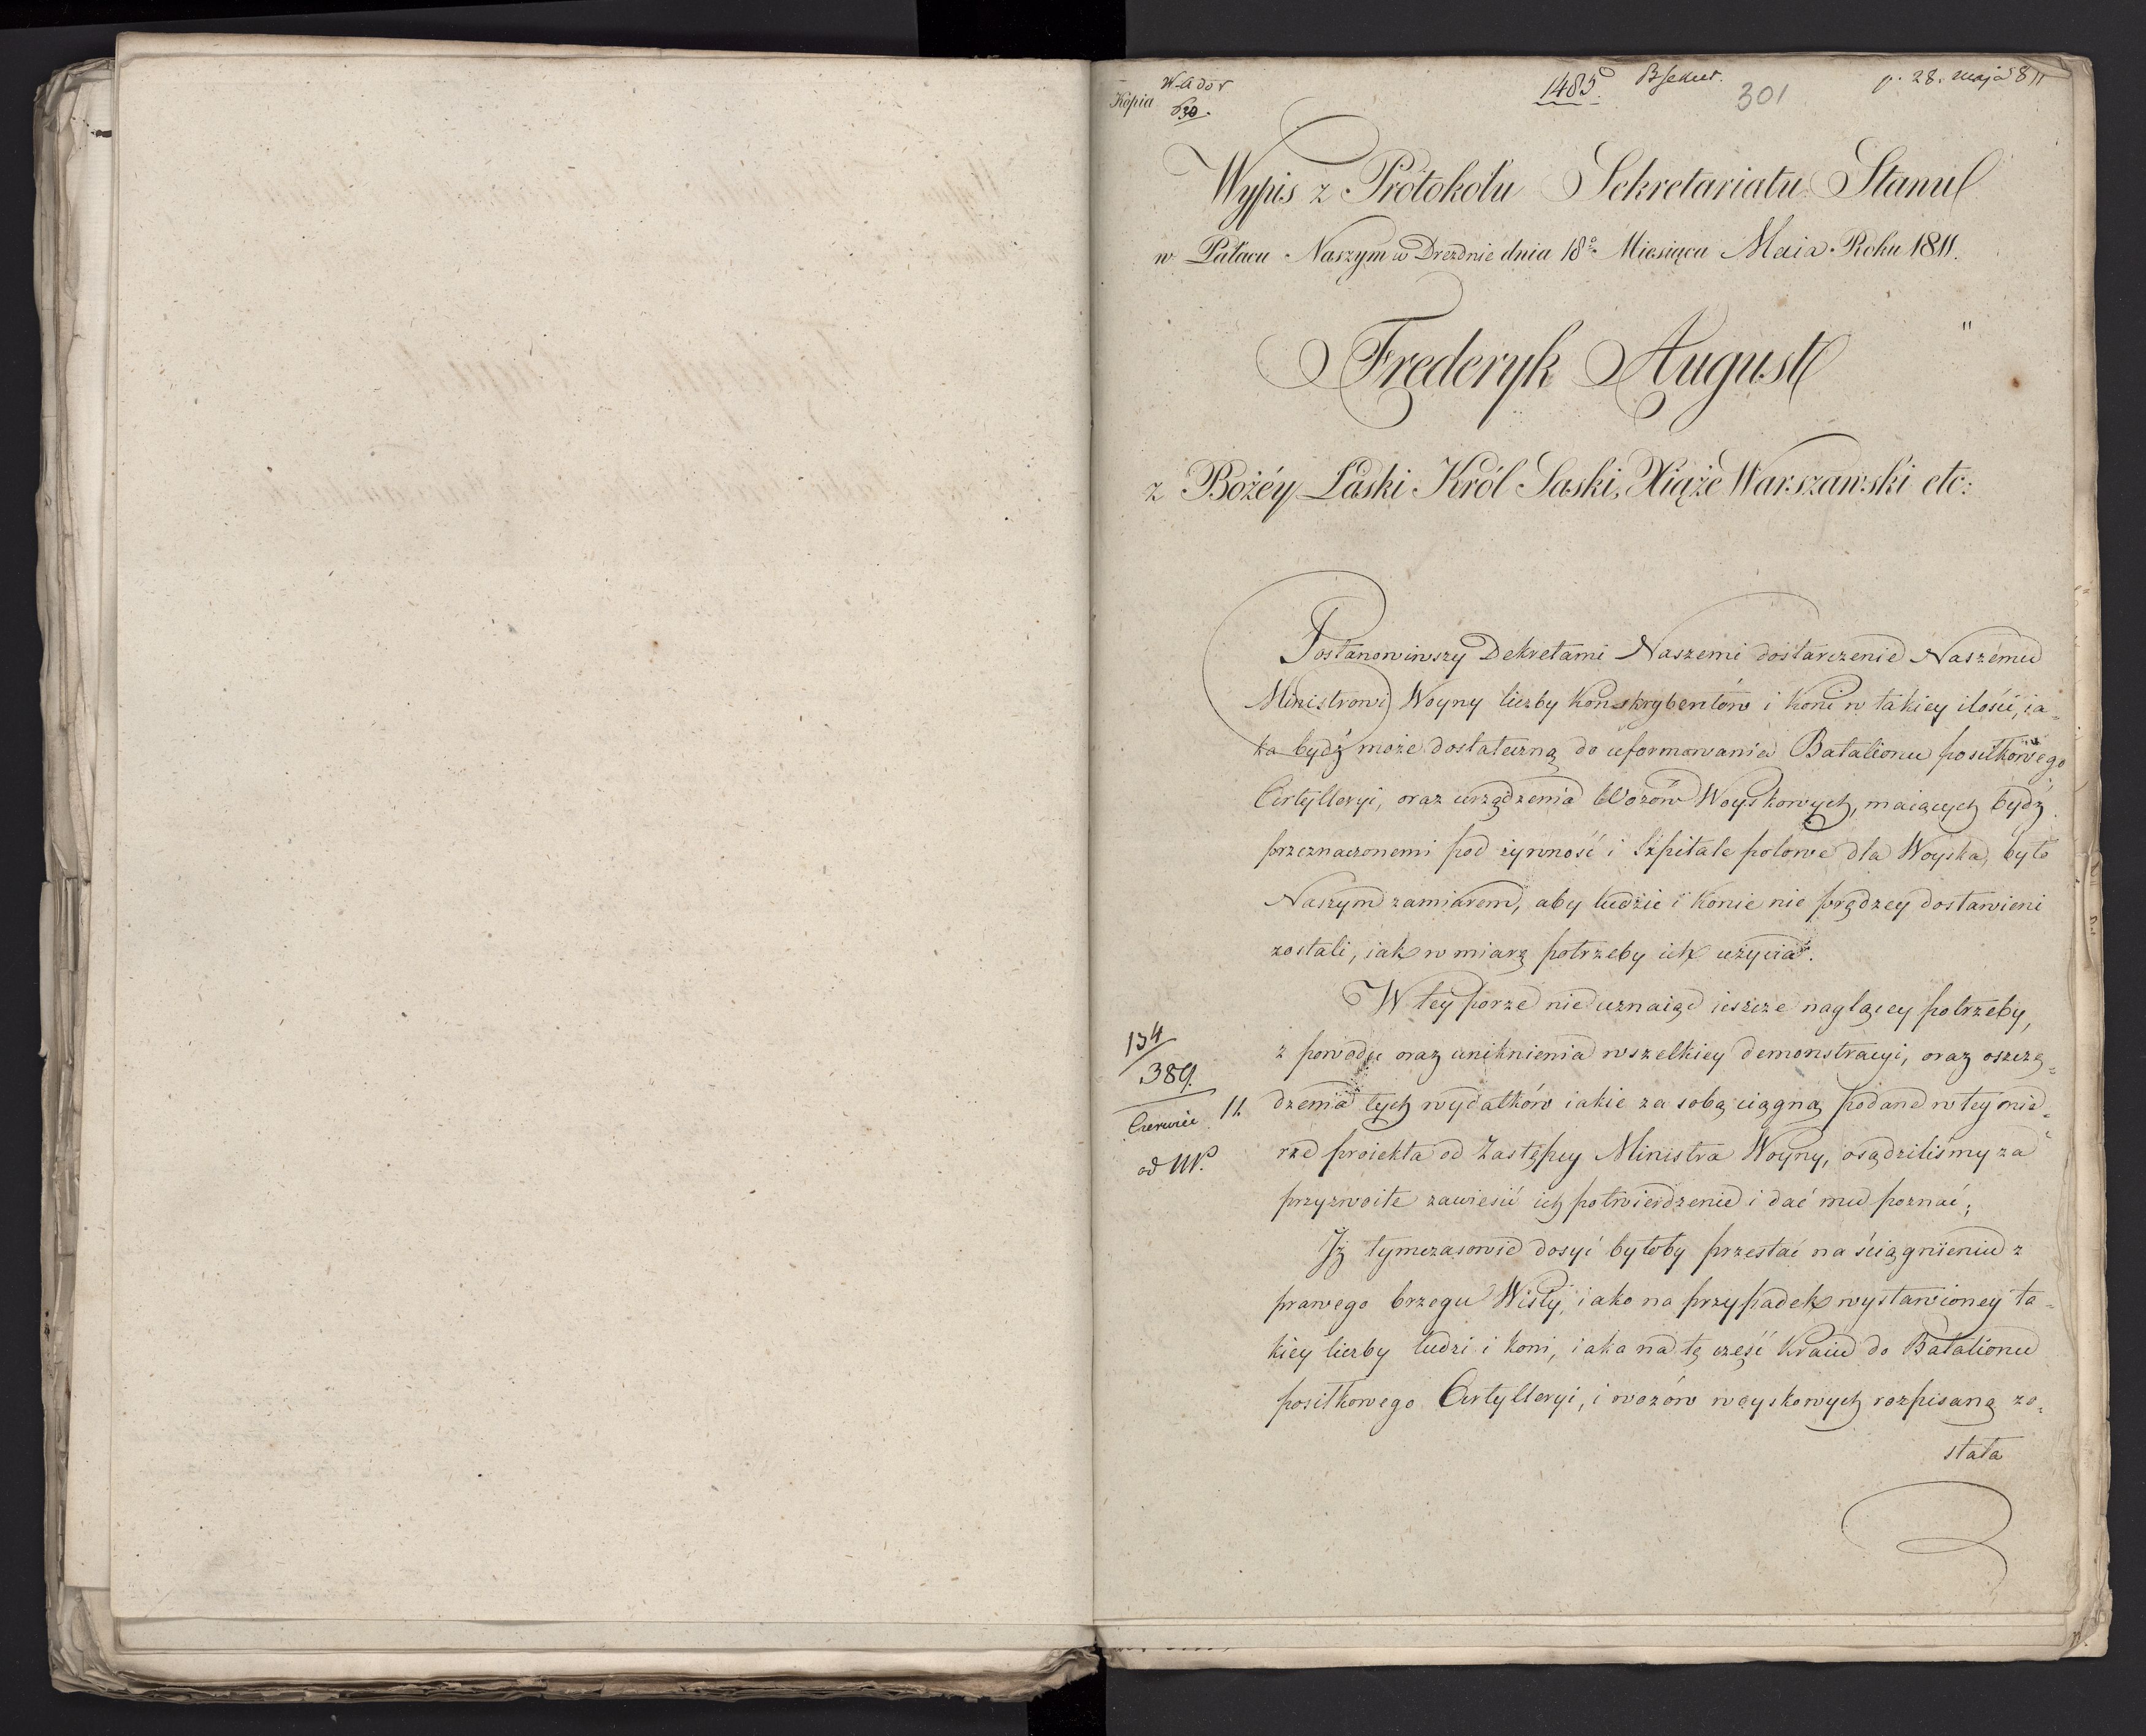 Kopia
630.
1485.
301
p. 28. maja 811
Wypis z Protokołu Sekretariatu Stanu
w Pałacu Naszym w Dreznie dnia 18º Miesiąca Maia Roku 1811.
Frederyk August
z Bożéy Łaski Król Saski, Xiąże Warszawski etc:
Postanowiwszy Dekretami Naszemi dostarczenie Naszému
Ministrowi Woyny liczby Konskrybentów i Koni w takiey ilości, ia„
ka bydź może dostateczną do uformowania Batalionu posiłkowego
Artylleryi, oraz urządzenia Wozów Woyskowych, maiących bydź
przeznaczonemi pod żywność i Szpitale polowe dla Woyska, było
Naszym zamiarem, aby ludzie i Konie nie prędzey dostawieni
zostali, iak w miarę potrzeby ich użycia.
W tey porze nie uznaiąc ieszcze naglącey potrzeby,
z powodu oraz uniknienia wszelkiey demonstracyi, oraz oszczę„
dzenia tych wydatków iakie za sobą ciągną podane w tey mie„
rze proiekta od Zastępcy Ministra Woyny, osądziliśmy za
przyzwoite zawiesić ich potwierdzenie i dać mu poznać;
Iż tymczasowie dosyć byłoby przestać na ściągnieniu z
prawego brzegu Wisły, iako na przypadek wystawioney ta„
kiey liczby ludzi i koni, iaka na tę część Kraiu do Batalionu
posiłkowego Artylleryi, i wozów woyskowych rozpisaną zo„
stała
134
389.
Czerwiec 11
od M.